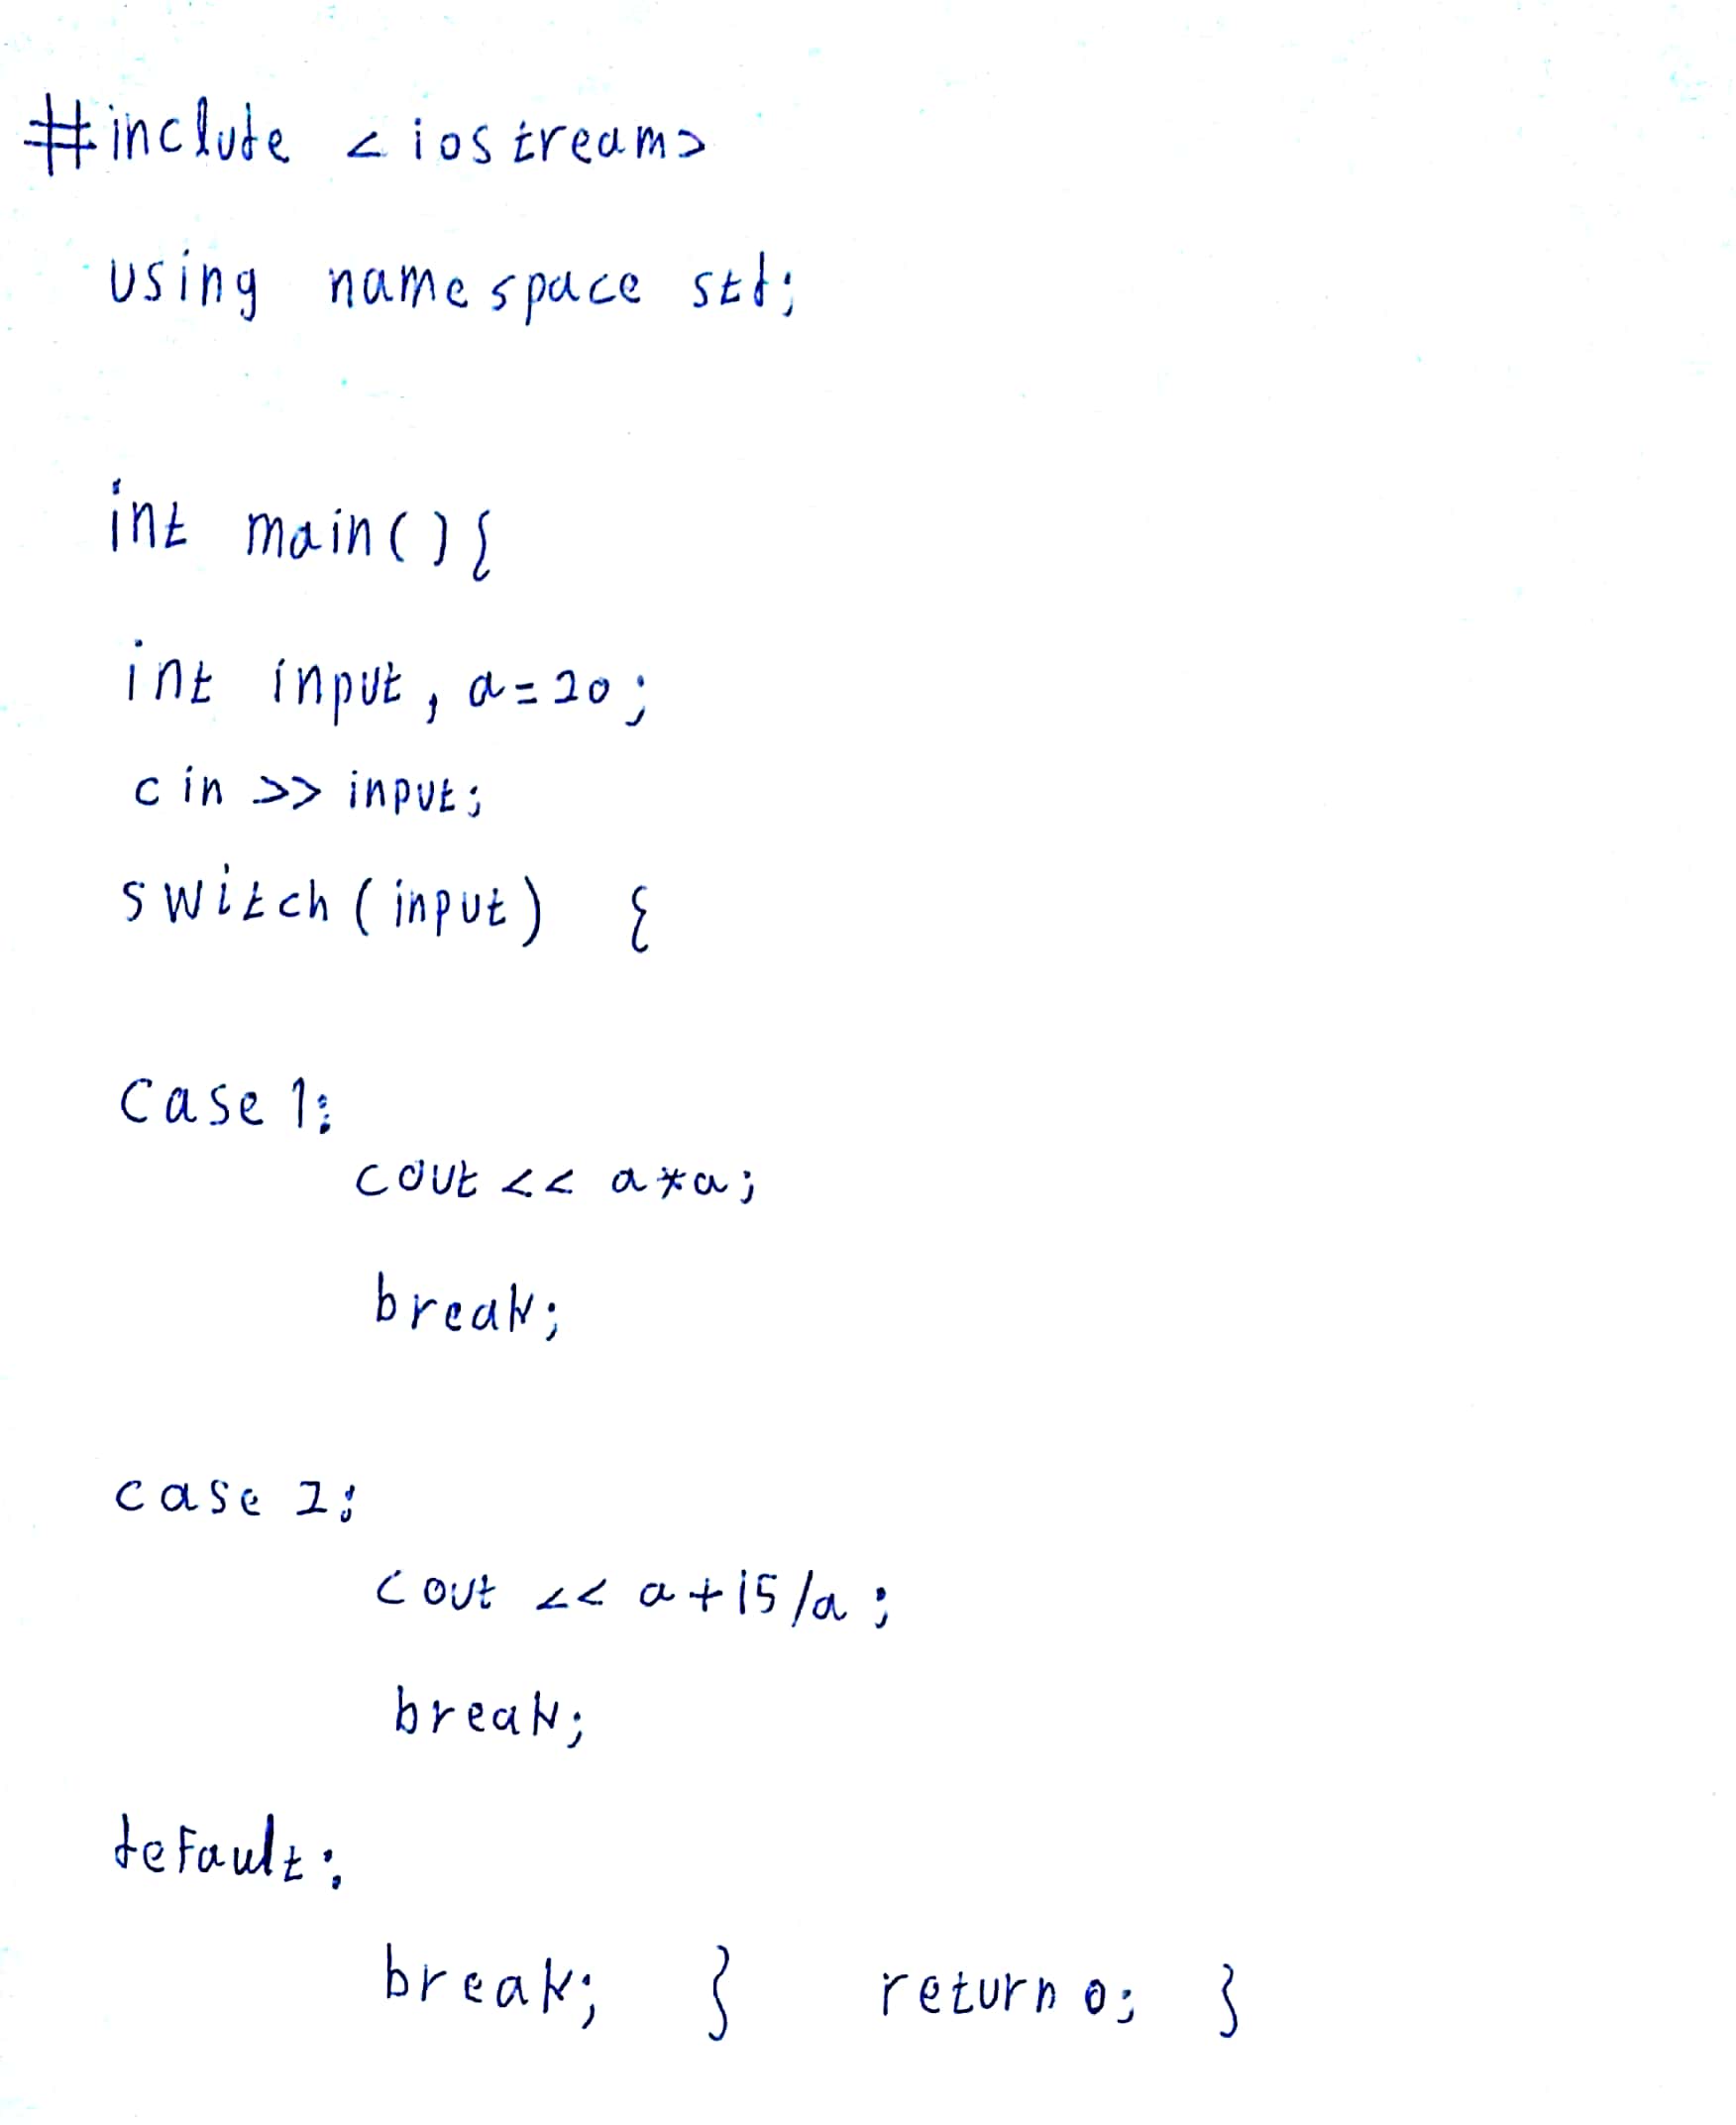 #include <iostream>
using namespace std;
int main(){
int input, a=20;
cin >> input;
switch(input) {
case 1:
cout << a*a;
break;
case 2:
cout << a+15/a;
break;
default:
break; } return 0; }